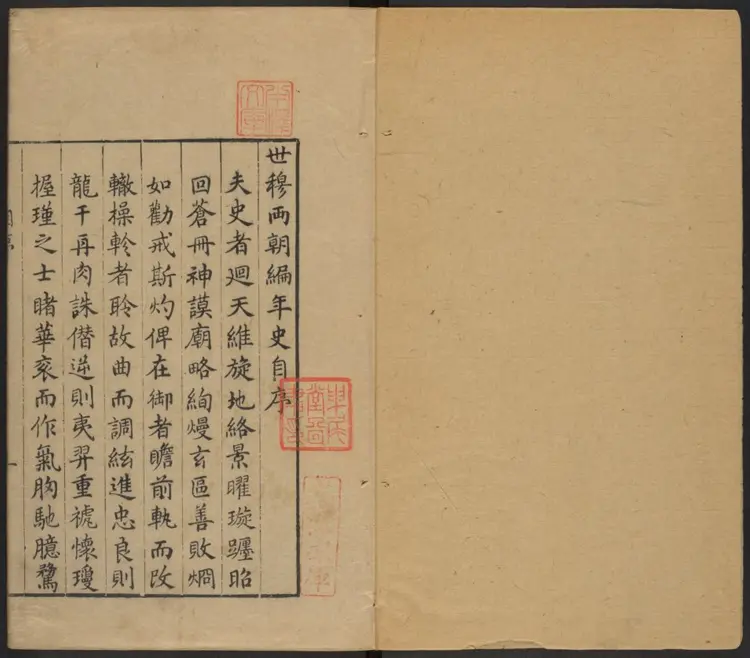 世穆兩朝編年史自序
夫史者迴天維旋地絡景曜璇躔昭
回蒼冊神謨廟略絢熳玄區善敗烱
如勸戒斯灼俾在御者瞻前軌而改
轍操軨者聆故曲而調絃進忠良則
龍干再肉誅僭逆則夷羿重褫懷瓊
握瑾之士睹華衮而作氣胸馳臆騖